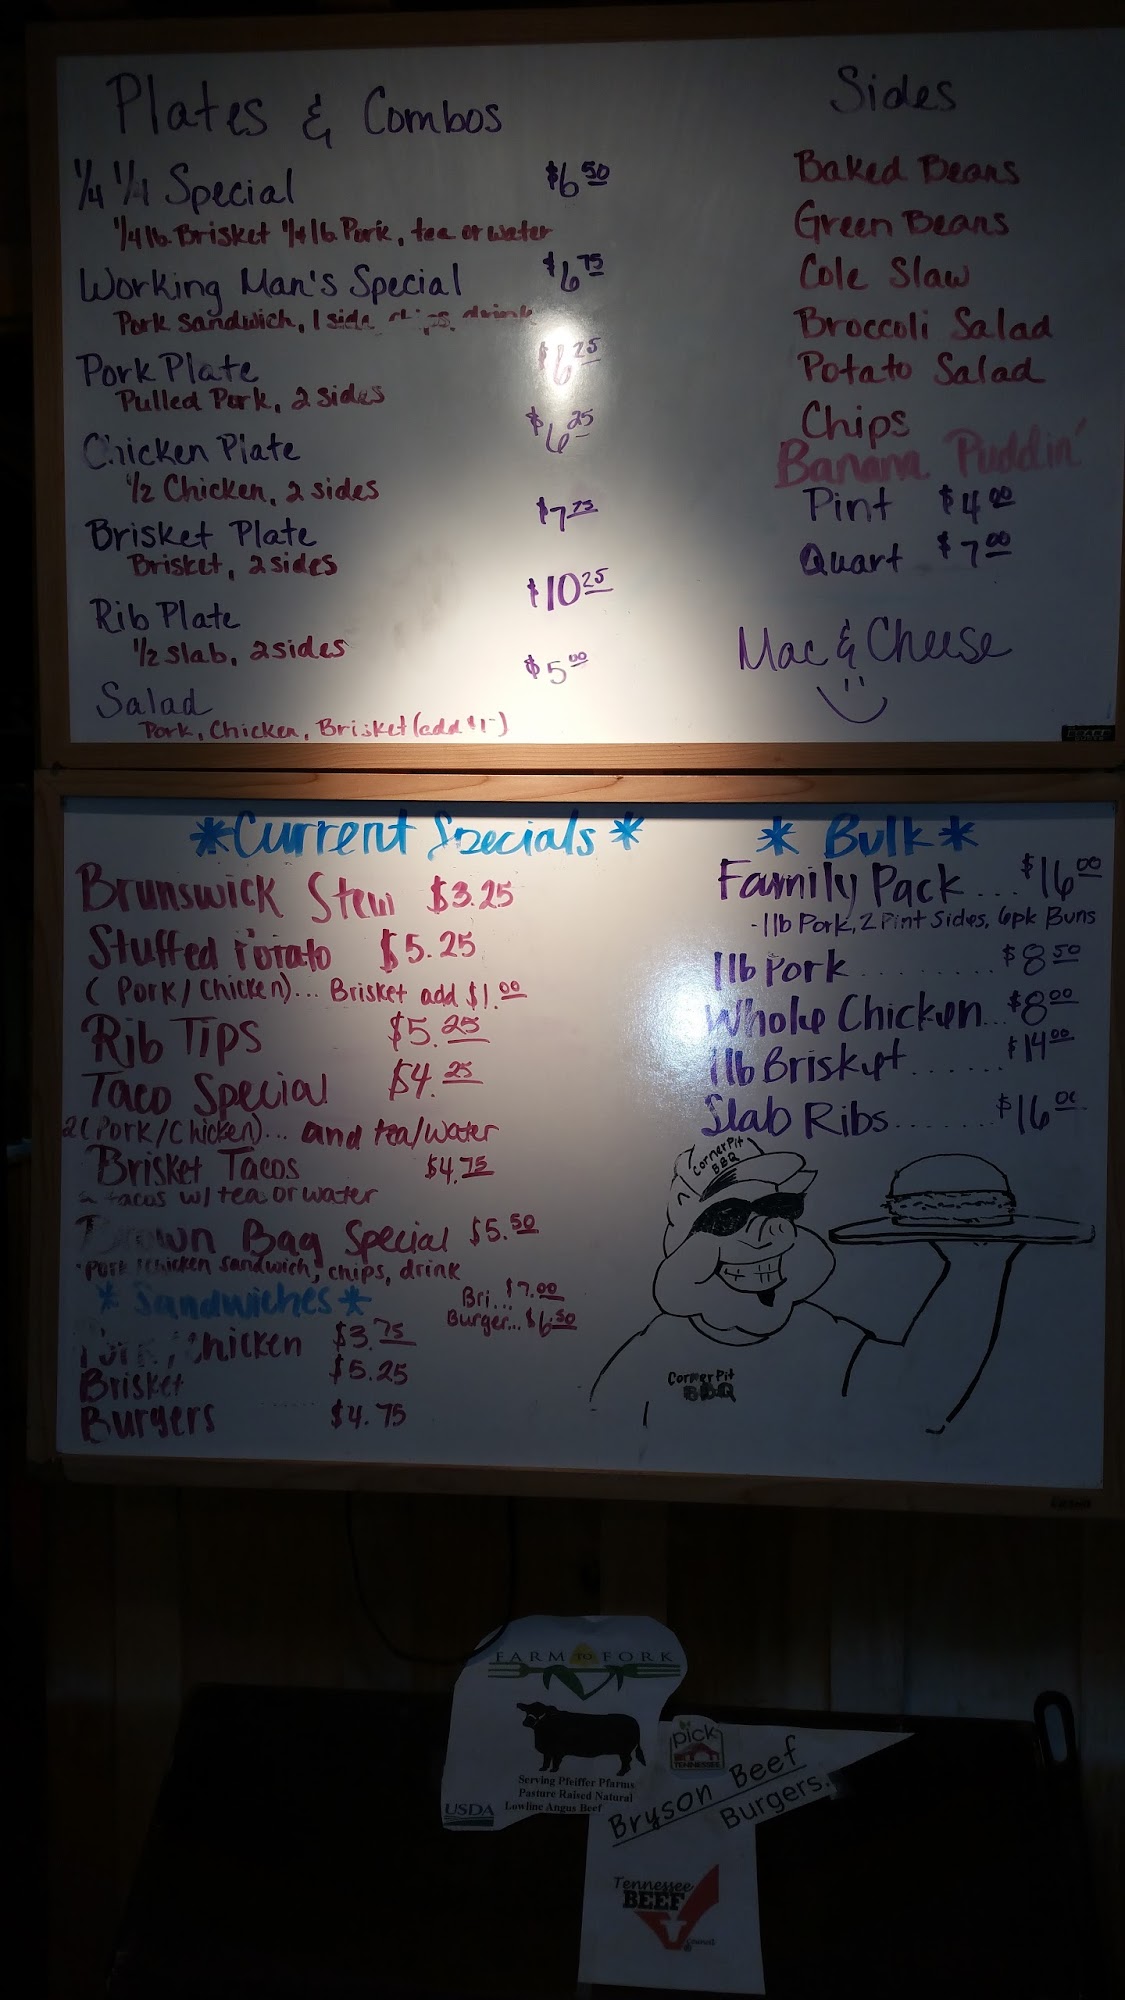 Plates & Combos
1/4 1/4 Special $6.50
1/4 lb. Brisket 1/4 lb Pork, tea or water
Working Man's Special $6.75
Pork Sandwich, 1 side, chips, drink
Pork Plate $6.25
Pulled Pork, 2 sides
Chicken Plate $6.25
1/2 Chicken, 2 sides
Brisket Plate $7.75
Brisket, 2 sides
Rib Plate $10.25
1/2 slab, 2 sides
Salad $5.00
Pork, Chicken, Brisket (add $1-)
Sides
Baked Beans
Green Beans
Cole Slaw
Broccoli Salad
Potato Salad
Chips
Banana Puddin'
Pint $4.00
Quart $7.00
Mac & Cheese
*Current Specials*
Brunswick Stew $3.25
Stuffed Potato $5.25
(Pork/Chicken)... Brisket add $1.00
Rib Tips $5.25
Taco Special $4.25
2 (Pork/Chicken)... and tea/water
Brisket Tacos $4.75
2 tacos w/ tea or water
Brown Bag Special $5.50
Pork/Chicken sandwich, chips, drink
Bri... $7.00
Burger... $6.50
*Sandwiches*
Pork/Chicken $3.75
Brisket $5.25
Burgers ..... $4.75
* Bulk *
Family Pack... $16.00
- 1lb Pork, 2 Pint Sides, 6pk Buns
1lb Pork ......... $8.50
Whole Chicken... $8.00
1lb Brisket ....... $14.00
Slab Ribs ....... $16.00
Corner Pit
BBQ
Corner Pit
BBQ
FARM TO FORK
Serving Pfeiffer Pfarms
Pasture Raised Natural
Lowline Angus Beef
USDA
pick
TENNESSEE
Bryson Beef
Burgers.
Tennessee
BEEF
Council